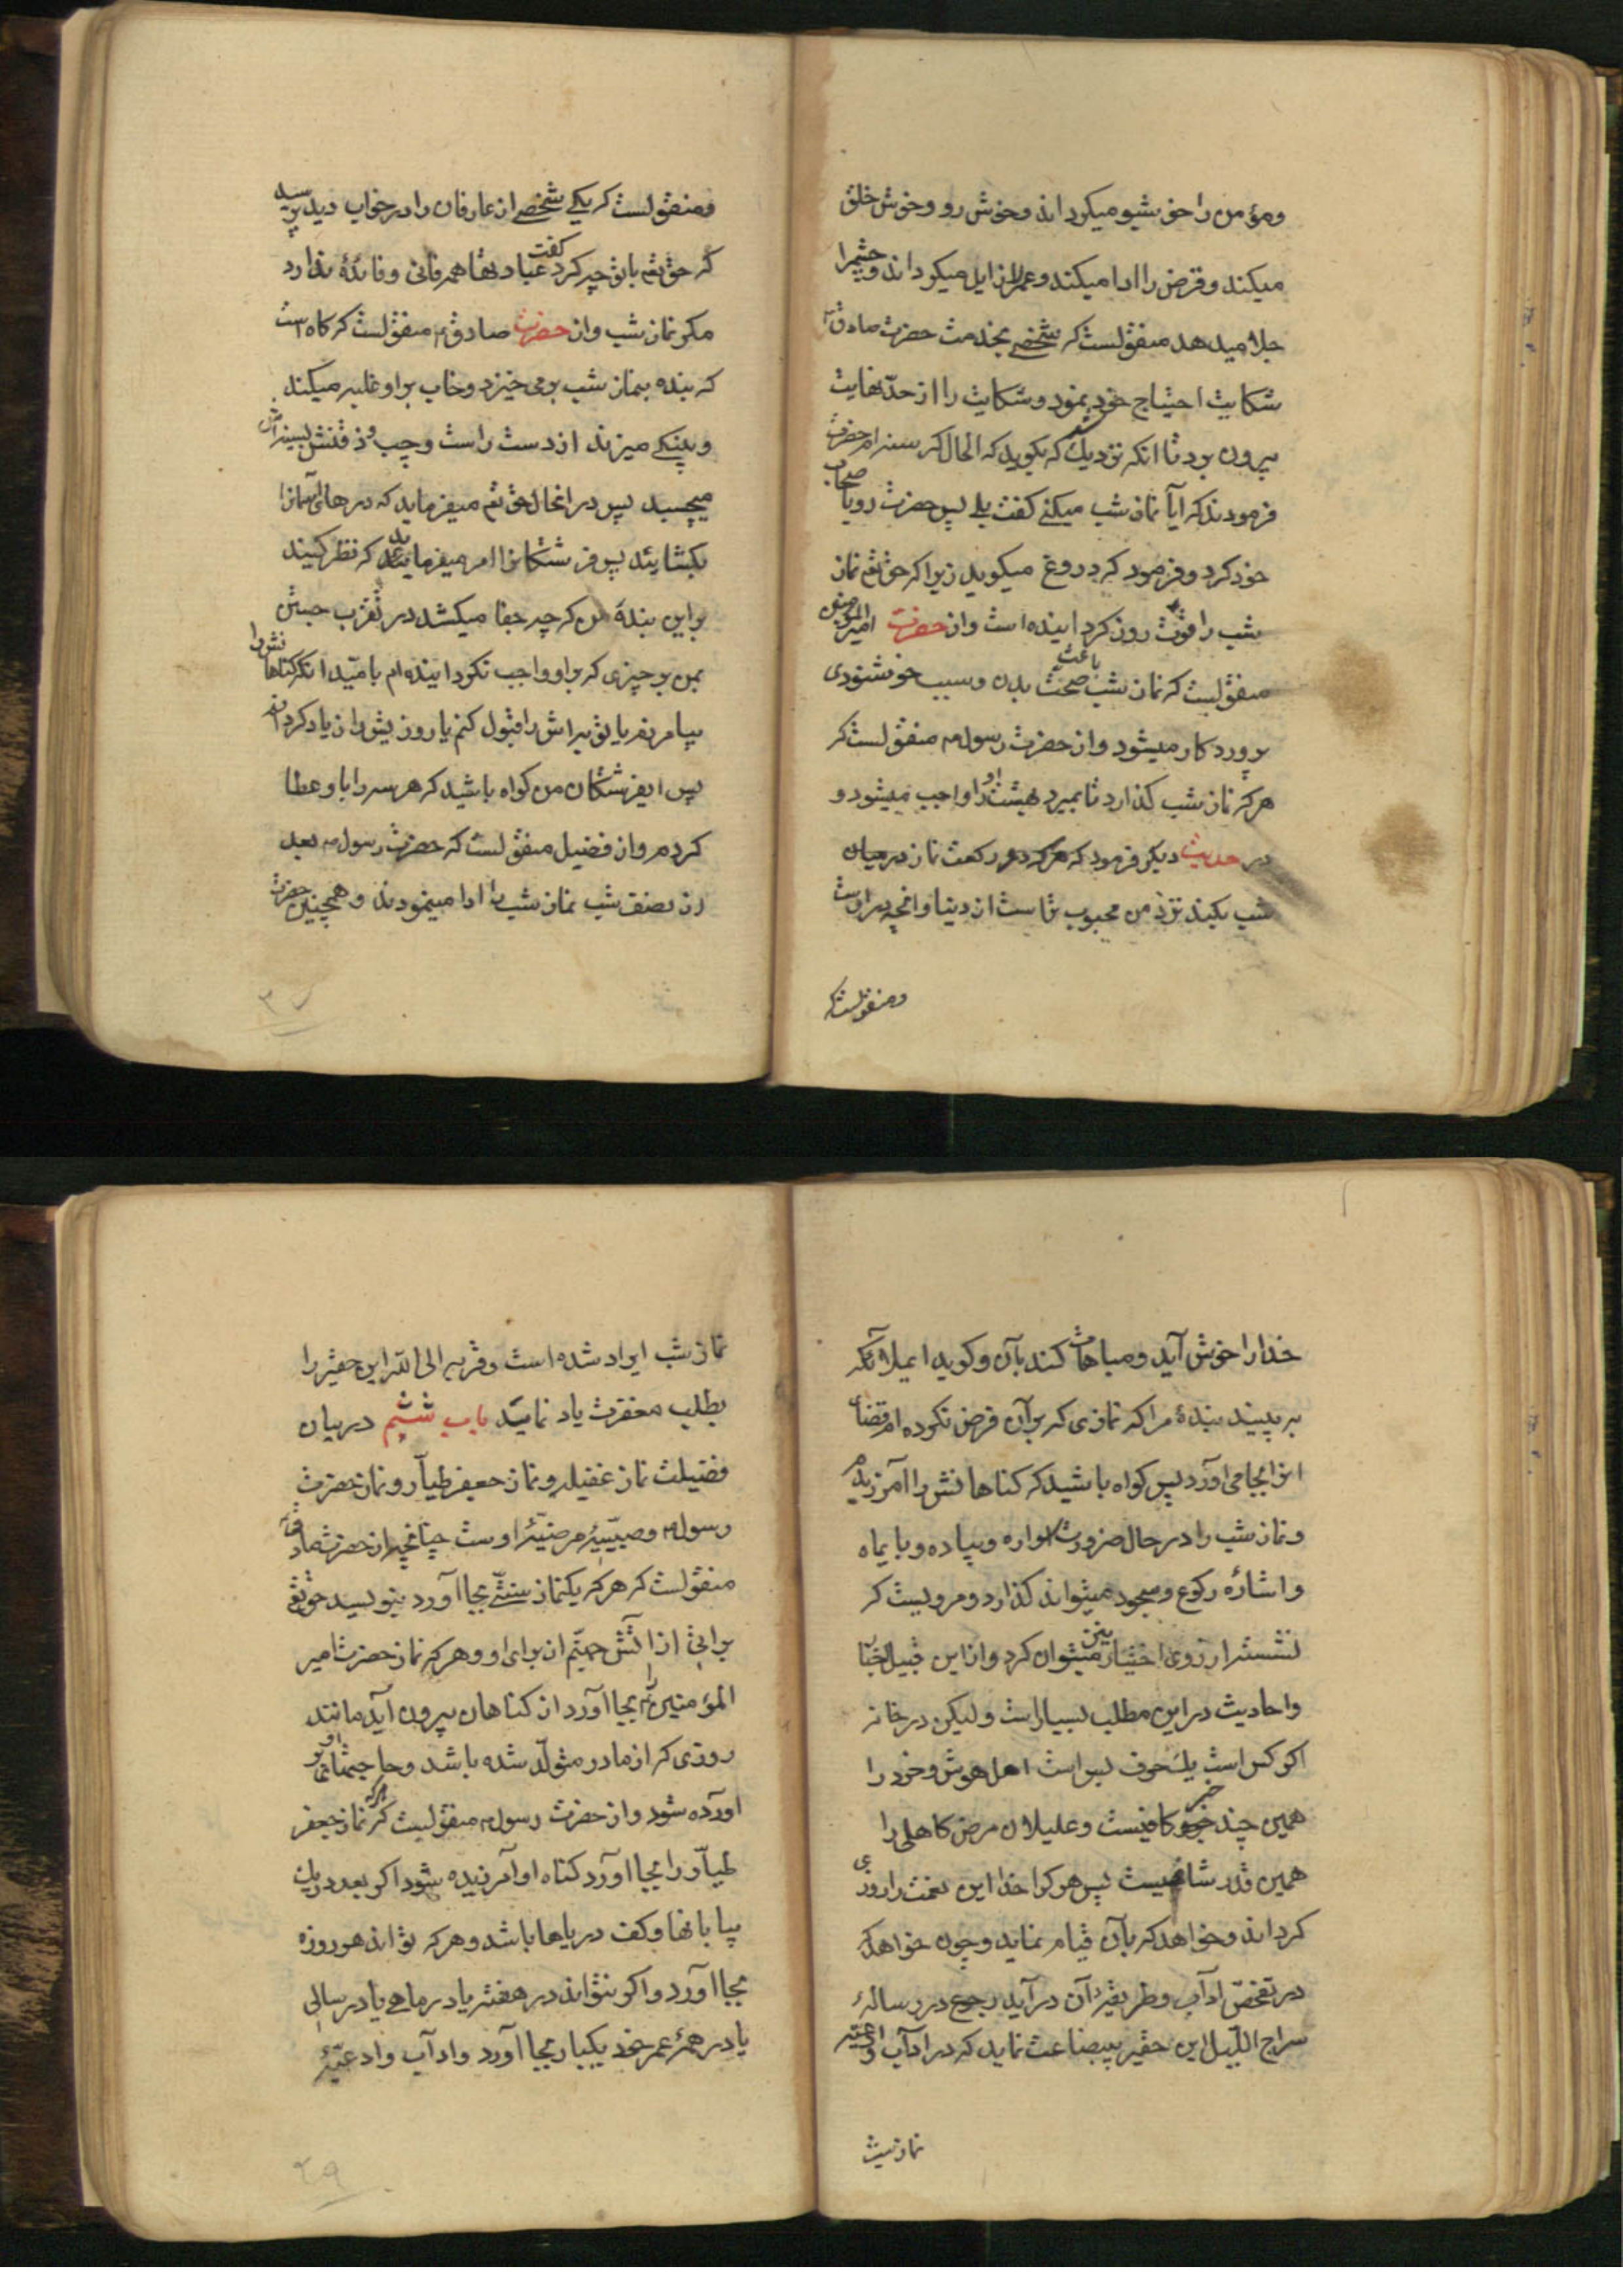 ومؤمن را خوشبو میکرداند وخوش رو وخوش خلق
میکند وقرض را ادا میکند وغم را زایل میکرداند وچشم را
جلا میدهد منقولست که شخصی بخدمت حضرت صادق
شکایت احتیاج خود نمود وشکایت را از حد نهایت
بیرون برد تا انکه نزدیک شد که بکوید که الحال کرسنه ام حضرت
فرمودند که ایا نماز شب میکنی کفت بلی پس حضرت رو باصحاب
خود کرد وفرمود که دروغ میکوید زیرا که حق تعم نماز
شب را قوت روز کردانیده است واز حضرت امیر المؤمنین
منقولست که نماز شب باعث صحت بدن وسبب خوشنودی
پروردکار میشود واز حضرت رسول م منقولست که
هر که نماز شب کذارد تا بمیرد بهشت او را واجب میشود و
در حدیث دیکر فرمود که هر که دو رکعت نماز در میان
شب بکند نزد من محبوب تر است از دنیا وانچه در اوست
ومنقولستکه
ومنقولست که یکی شخصی از عارفان را در خواب دید پرسید
که حق تعم با تو چه کرد کفت عبادتها همه فانی وفائدهٔ ندارد
مکر نماز شب واز حضرت صادق م منقولست که کاه است
که بنده بنماز شب بر می خیزد وخاب بر او غلبه میکند
وپینکی میزند از دست راست وچپ وذقنش بسینه اش
میچسبد پس در انحال حق تعم میفرماید که درهای آسمانرا
بکشایند پس فرشتکانرا امر میفرماید که نظر کنید
بر این بندهٔ من که چه جفا میکشد در تقرب جستن
بمن بر چیزی که بر او واجب نکردانیده ام بامید انکه کناهانش را
بیامرزم یا توبه اش را قبول کنم یا روزیش را زیاد کردانم
پس ایفرشتکان من کواه باشید که هر سه را باو عطا
کردم واز فضیل منقولست که حضرت رسول م بعد
از نصف شب نماز شب را ادا مینمودند وهمچنین حضرت
۳۷
خدا را خوش آید ومباهات کند بآن وکوید ایملائکه
به بینید بندهٔ مرا که نمازی که بر آن فرض نکرده ام قضای
انرا بجا می اورد پس کواه باشید که کناهانش را آمرزیدم
ونماز شب را در حال ضرورت سواره وپیاده وبایماء
واشارهٔ رکوع وسجود میتواند کذارد ومرویست که
نشسته از روی اختیار نیز میتوان کرد واز این قبیل اخبار
واحادیث در این مطلب بسیار است ولیکن در خانه
اکر کس است یک حرف بس است اهل هوش وخرد را
همین چند خبر کافیست وعلیلان مرض کاهلی را
همین قدر شافیست پس هر کرا خدا این نعمت را روزی
کرداند وخواهد که بآن قیام نماید وچون خواهد که
در تفحص اداب وطریقهٔ آن در آید رجوع در رسالهٔ
سراج اللیل این حقیر بیبضاعت نماید که در اداب وادعیه
نماز شب
نماز شب ایراد شده است وقربه الی الله این حقیر را
بطلب مغفرت یاد نمایید باب ششم در بیان
فضیلت نماز غفیله ونماز جعفر طیار ونماز حضرت
رسول م ووصیهٔ مرضیهٔ اوست چنانچه از حضرت صادق
منقولست که هر که یکنماز سنتی بجا اورد بنویسد حق تع
براتی از اتش جهنم از برای او وهر که نماز حضرت امیر
المؤمنین بجا آورد از کناهان بیرون آید مانند
روزی که از مادر متولد شده باشد وحاجتهای او بر
اورده شود واز حضرت رسول م منقولیست که هر که نماز جعفر
طیار را بجا اورد کناه او آمرزیده شود اکر بعدد ریک
بیابانها وکف دریاها باشد وهر که تواند هر روزه
بجا اورد واکر نتواند در هفته یا در ماهی یا در سالی
یا در همهٔ عمر خود یکبار بجا آورد واداب وادعیهٔ
۳۹